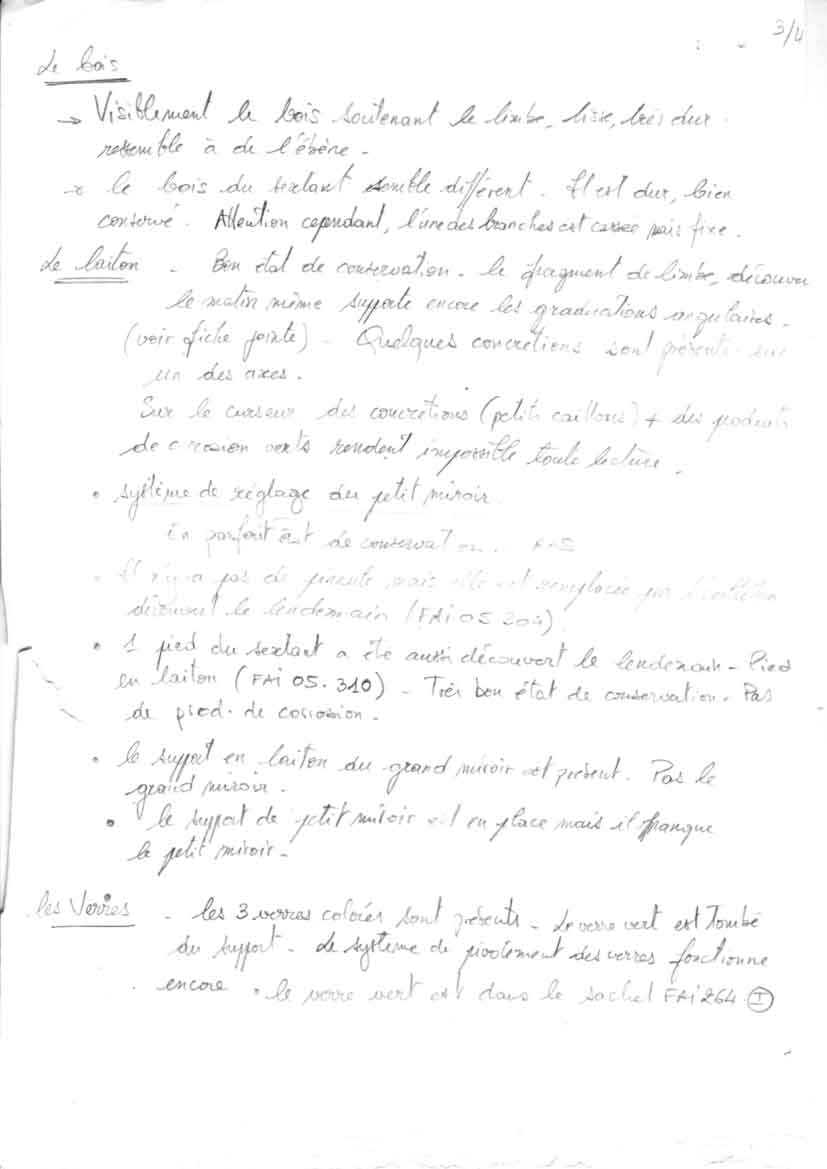 3/4
Le bois
→ Visiblement le bois soutenant le limbe, lisse, très dur
ressemble à de l'ébène -
→ le bois du sextant semble différent. Il est dur, bien
conservé. Attention cependant, l'une des branches est cassée mais fixe.
Le laiton - Bon état de conservation. le fragment de limbe, découvert
le matin même supporte encore les graduations angulaires -
(voir fiche jointe) - Quelques concrétions sont présentes sur
un des axes.
Sur le curseur des concrétions (petits cailloux) + des produits
de corrosion verts rendent impossible toute lecture.
• système de réglage du petit miroir
En parfait état de conservation.
• Il n'y a pas de pinnule mais elle est remplacée par
découvert le lendemain (FAi 05 204)
• 1 pied du sextant a été aussi découvert le lendemain - Pied
en laiton (FAi 05. 310) - Très bon état de conservation. Pas
de prod. de corrosion.
• le support en laiton du grand miroir est présent. Pas le
grand miroir.
• le support de petit miroir est en place mais il manque
le petit miroir -
les Verres - les 3 verres colorés sont présents - Le verre vert est Tombé
du support - Le système de pivotement des verres fonctionne
encore • le verre vert est dans le sachet FAi 264 I